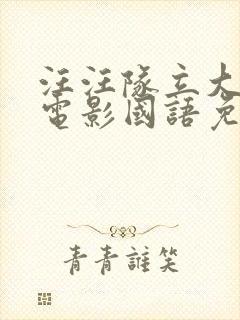 汪汪隊立大
電影國語免
青青誰笑